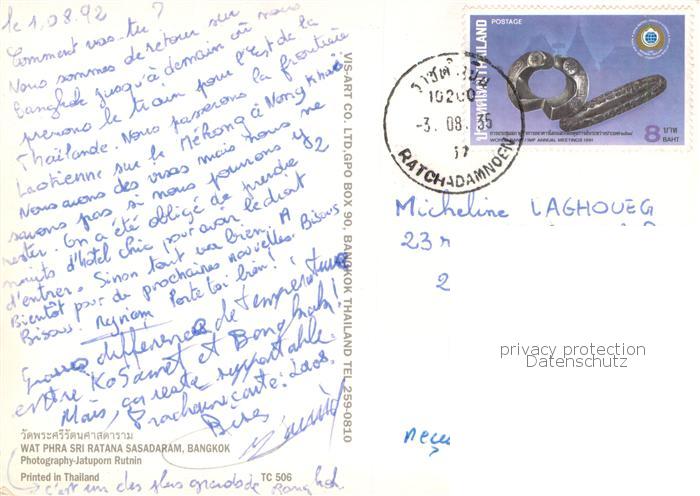 le 1.08.92
Comment vas-tu ?
Nous sommes de retour sur
Bangkok jusqu'à demain où nous
prenons le train pour l'est de la
Thaïlande. Nous passerons la frontière
Laotienne sur le Mékong à Nong Khai
Nous avons des visas mais nous ne
savons pas si nous pourrons y
rester. On a été obligé de prendre 2
nuits d'hôtel chic pour avoir le droit
d'entrer. Sinon tout va bien. A
Bientôt pour de prochaines nouvelles. Bisous
Bisous. Myriam Porte toi bien !
différence de température
entre Ko Samet et Bangkok !
Mais, ça reste supportable.
Prochaine carte : Laos.
Bises
วัดพระศรีรัตนศาสดาราม
WAT PHRA SRI RATANA SASADARAM, BANGKOK
Photography-Jatuporn Rutnin
Printed in Thailand TC 506
c'est un des plus grands de Bangkok
VIS-ART CO. LTD,GPO BOX 90, BANGKOK THAILAND TEL 259-0810
ประเทศไทย THAILAND
POSTAGE
WORLD BANK / IMF ANNUAL MEETINGS 1991
8 บาท
BAHT
10200
-3. 08. 35
17
RATCHADAMNOEN
Micheline LAGHOUEG
23
2
privacy protection
Datenschutz